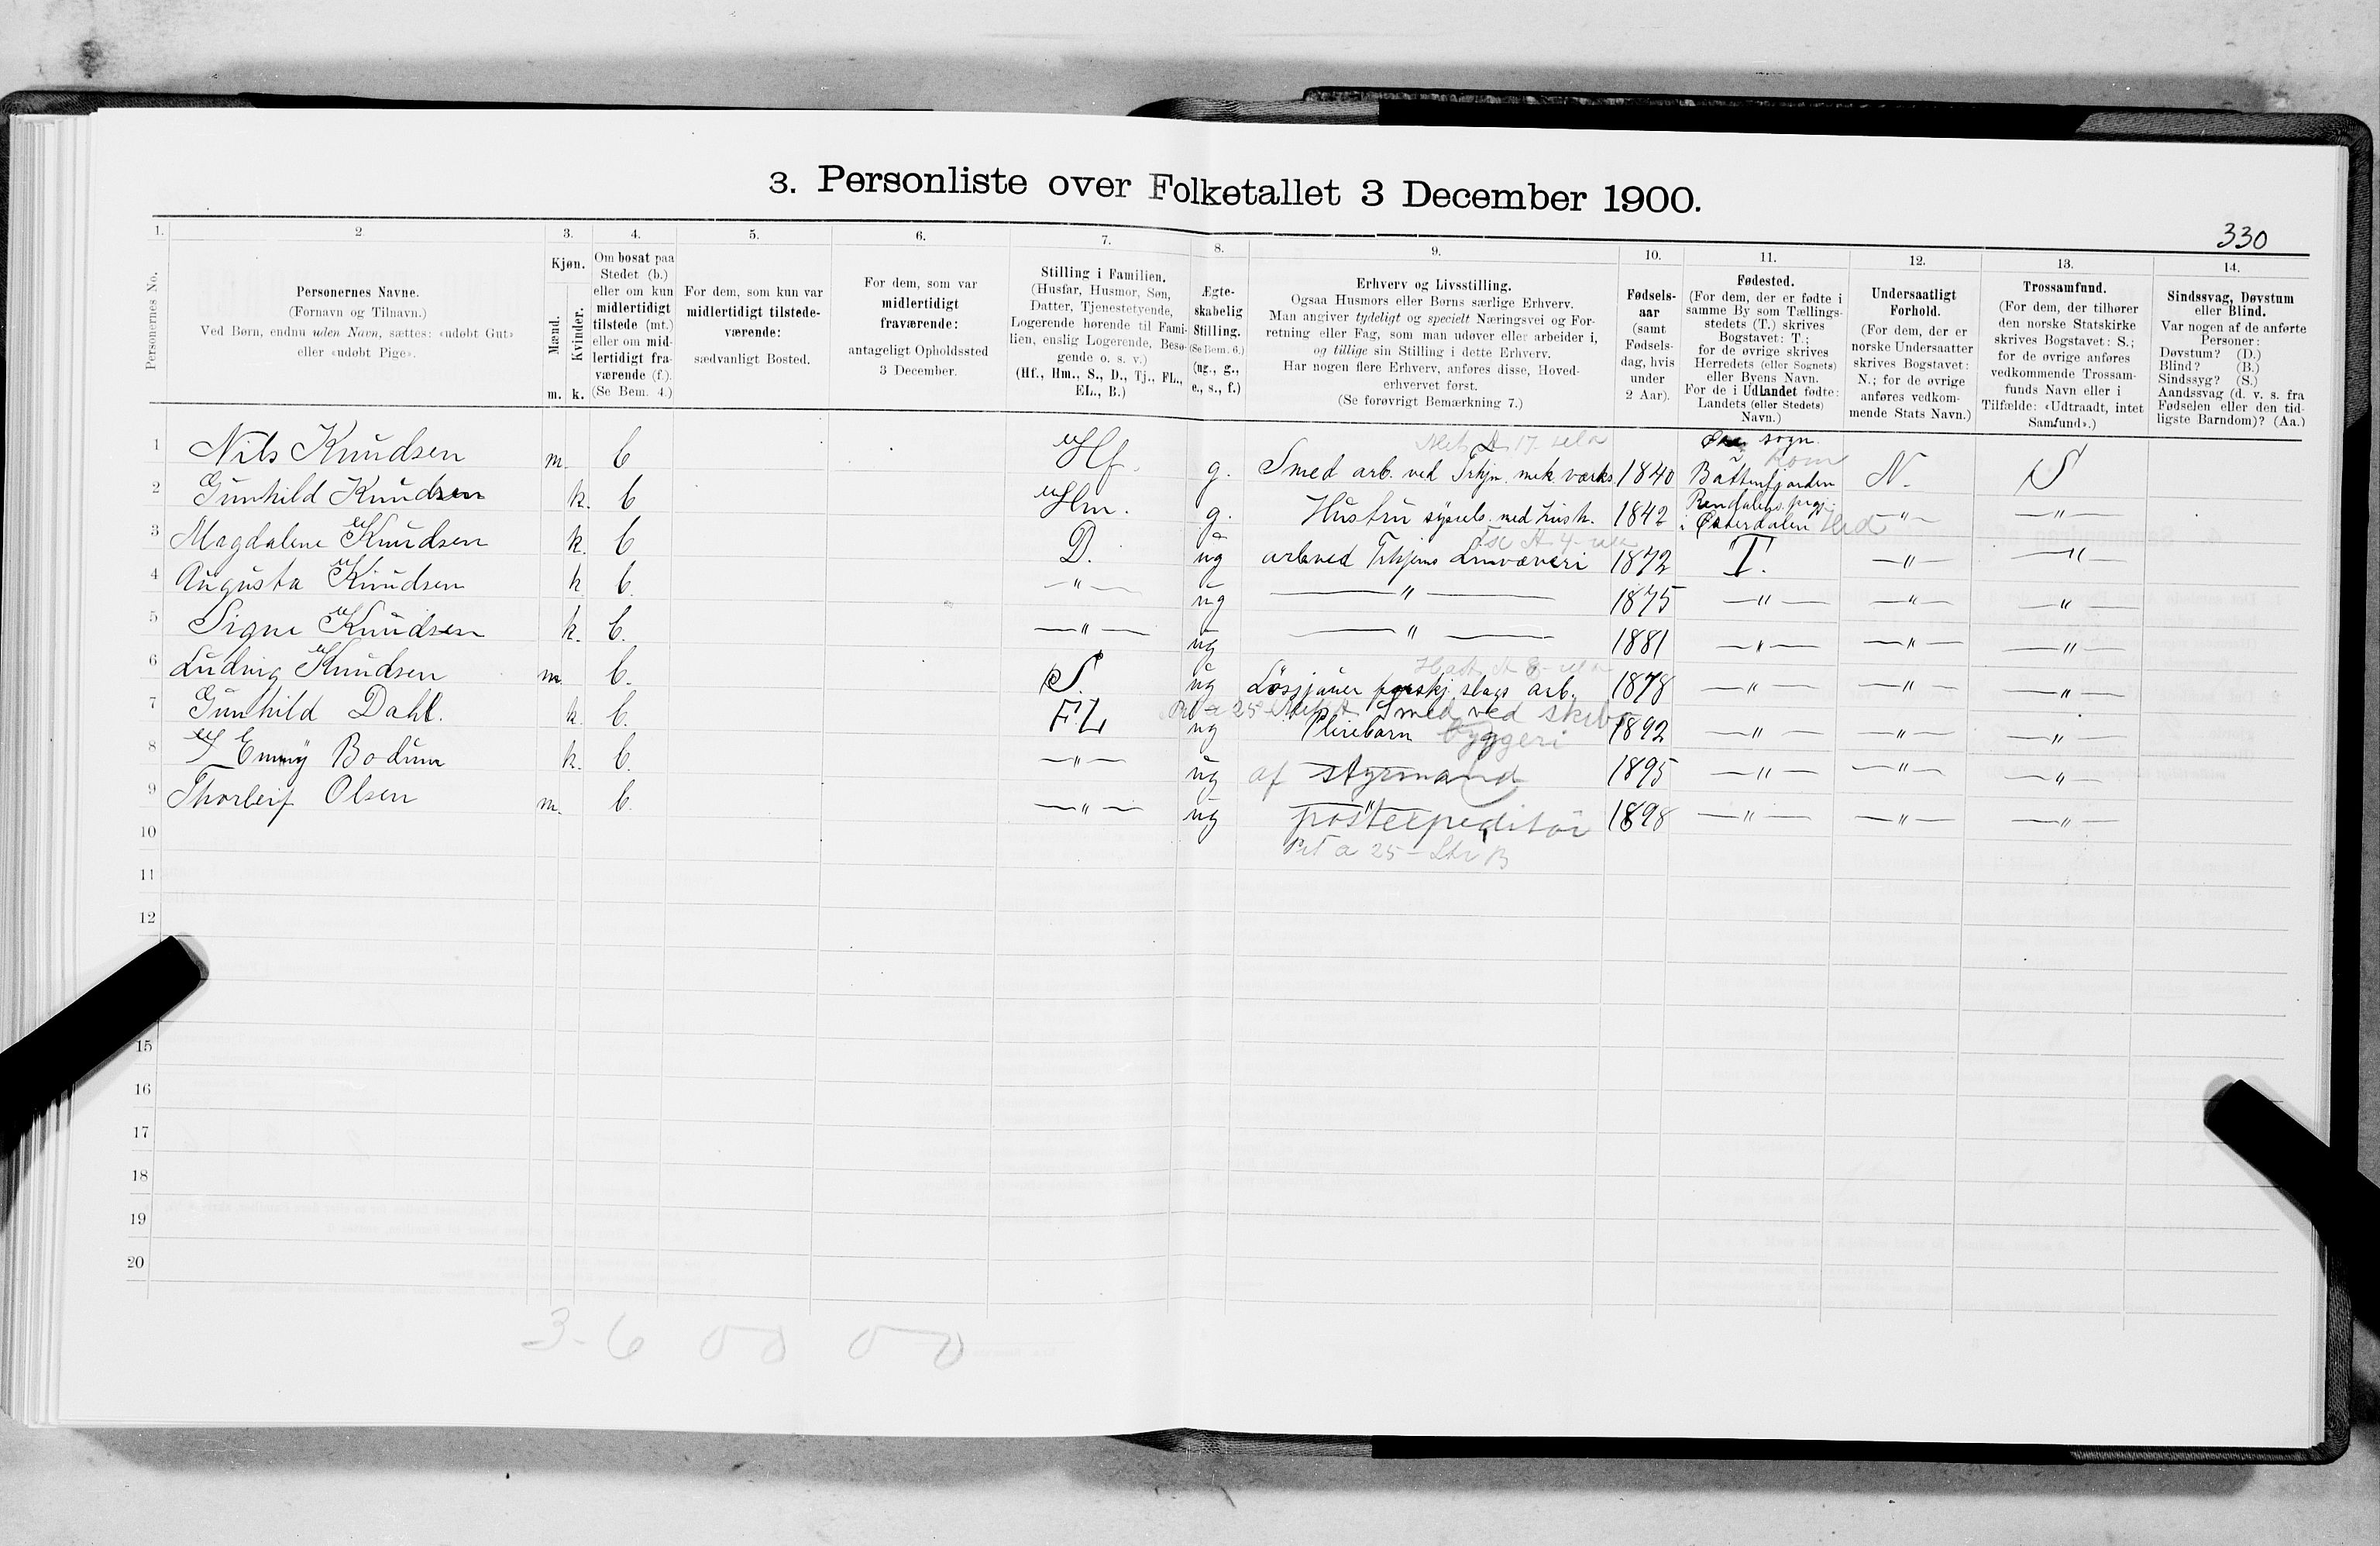 3. Personliste over Folketallet 3 December 1900.
330
1. 2 3. 4. 5. 6. 7. 8. 9. 10. 11. 12. 13. 14.
Personernes No.
Personernes Navne.
(Fornavn og Tilnavn.)
Ved Børn, endnu uden Navn, sættes: «udøbt Gut»
eller «udøbt Pige».
Kjøn.
Mænd.
Kvinder.
m. k.
Om bosat paa
Stedet (b.)
eller om kun
midlertidigt
tilstede (mt.)
eller om mid-
lertidigt fra-
værende (f.).
(Se Bem. 4.)
For dem, som kun var
midlertidigt tilstede-
værende:
sædvanligt Bosted.
For dem, som var
midlertidigt
fraværende:
antageligt Opholdssted
3 December.
Stilling i Familien.
(Husfar, Husmor, Søn,
Datter, Tjenestetyende,
Logerende hørende til Fami-
lien, enslig Logerende, Besø-
gende o. s. v.)
(Hf., Hm., S., D., Tj., FL.,
EL., B.)
Ægte-
skabelig
Stilling.
(Se Bem. 6.)
(ug., g.,
e., s., f.)
Erhverv og Livsstilling.
Ogsaa Husmors eller Børns særlige Erhverv.
Man angiver tydeligt og specielt Næringsvei og For-
retning eller Fag, som man udøver eller arbeider i,
og tillige sin Stilling i dette Erhverv.
Har nogen flere Erhverv, anføres disse, Hoved-
erhvervet først.
(Se forøvrigt Bemærkning 7.)
Fødsels-
aar
(samt
Fødsels-
dag, hvis
under
2 Aar).
Fødested.
(For dem, der er fødte i
samme By som Tællings-
stedets (T.) skrives
Bogstavet: T.;
for de øvrige skrives
Herredets (eller Sognets)
eller Byens Navn.
For de i Udlandet fødte:
Landets (eller Stedets)
Navn.)
Undersaatligt
Forhold.
(For dem, der er
norske Undersaatter
skrives Bogstavet:
N.; for de øvrige
anføres vedkom-
mende Stats Navn.)
Trossamfund.
(For dem, der tilhører
den norske Statskirke
skrives Bogstavet: S.;
for de øvrige anføres
vedkommende Trossam-
funds Navn eller i
Tilfælde: «Udtraadt, intet
Samfund».)
Sindssvag, Døvstum
eller Blind.
Var nogen af de anførte
Personer:
Døvstum? (D.)
Blind? (B.)
Sindssyg? (S.)
Aandssvag (d. v. s. fra
Fødselen eller den tid-
ligste Barndom)? (Aa.)
sogn.
Rom
1 Nils Knudsen m. b Hf. g. Smed arb. ved Trhjn. mek. værks 1840 Battenfjorden N. S
Rendalens prgj.
2 Gunhild Knudsen k. b Hm. g. Hustru syssels. med hush. 1842 i Østerdalen Hed —"— —"—
3 Magdalene Knudsen k. b D. ug arb. ved Trhjems Linvæveri 1872 T. —"— —"—
4 Augusta Knudsen k b. —"— ug —"— 1875 —"— —"— —"—
5 Signe Knudsen k. b. —"— ug —"— 1881 —"— —"— —"—
6 Ludvig Knudsen m. b. S. ug Løsjjauer forskj. slags arb. 1878 —"— —"— —"—
Smed ved skibs
7 Gunhild Dahl. k. b. F.L ug Pleiebarn byggeri 1892 —"— —"— —"—
8 Emmy Bodum k. b. —"— ug af styrmand 1895 —"— —"— —"—
9 Thorleif Olsen m. b. —"— ug postexpeditør 1898 —"— —"— —"—
a 25
10
11
12
15
16
17
18
19
20
3-6 0 0 0-0